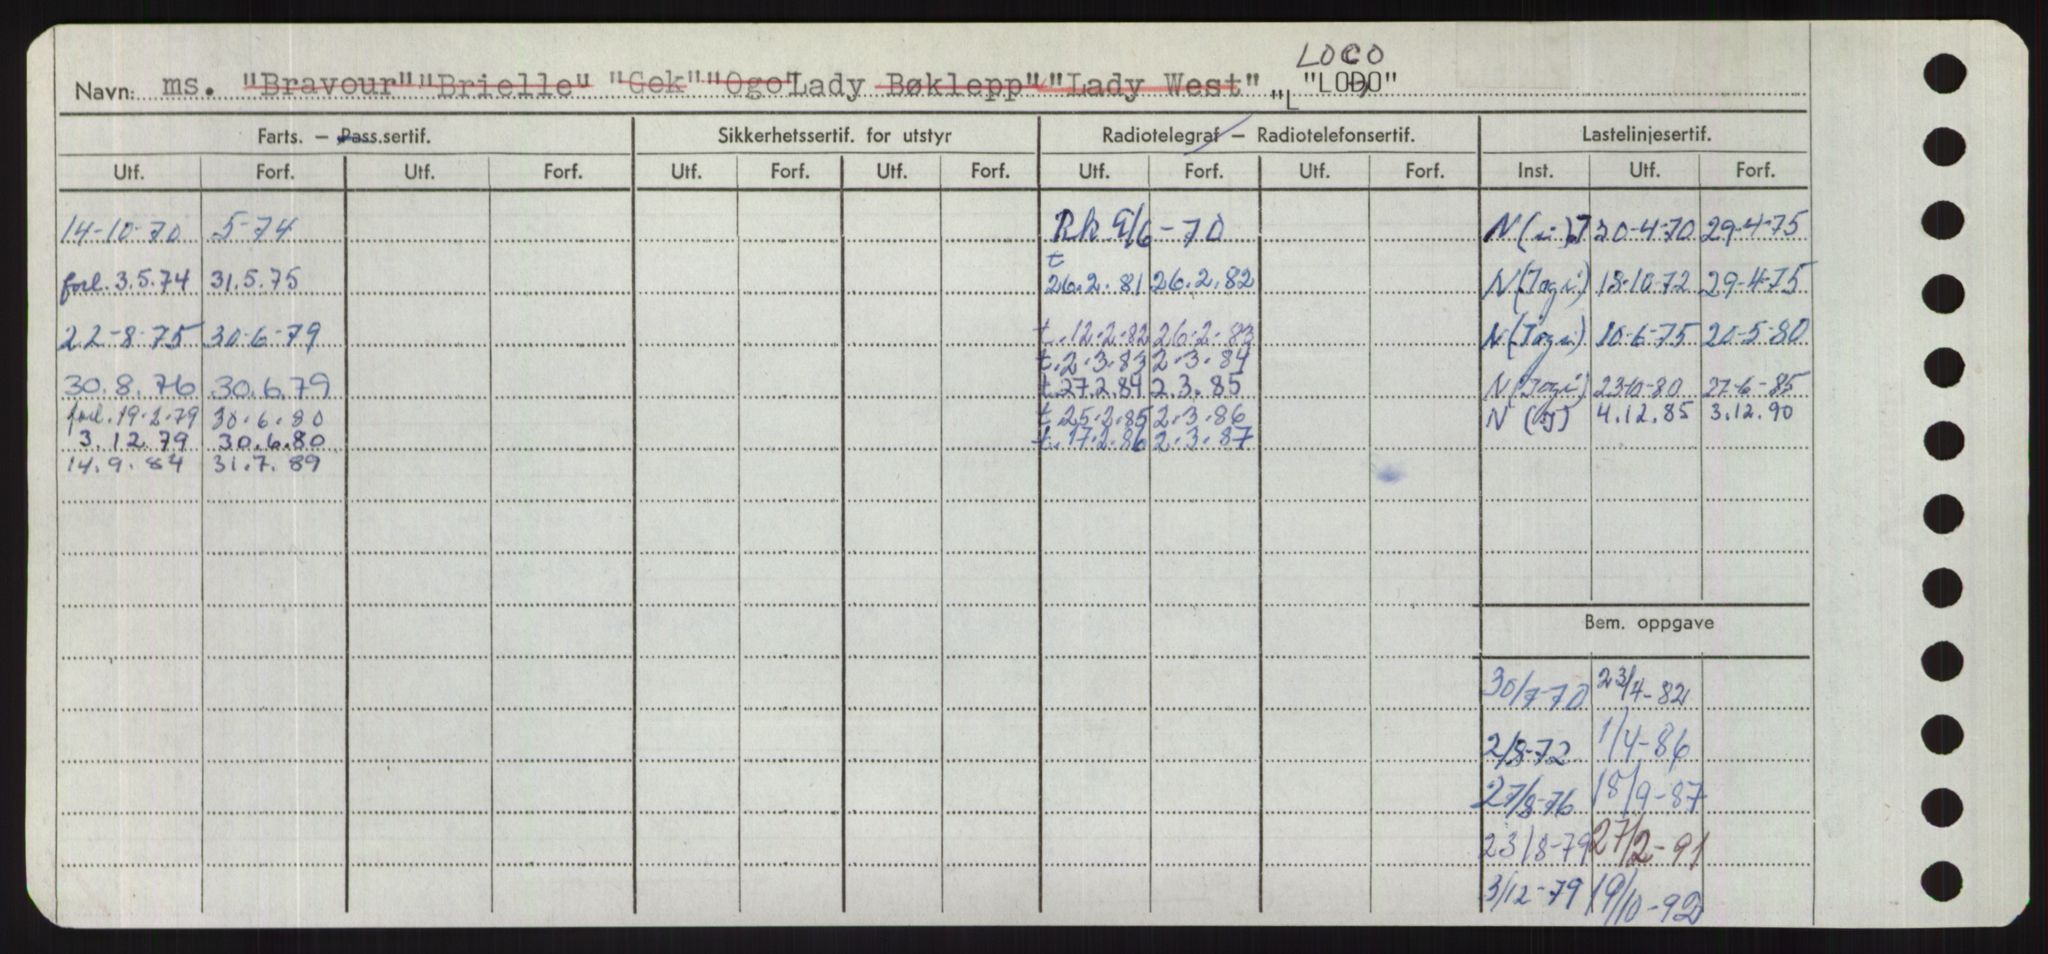 LOCO
Navn: ms. "Bravour" "Brielle" "Gek" "Ogo" Lady Bøklepp" "Lady West" "L "LODO"
Farts. — Pass.sertif. Sikkerhetssertif. for utstyr Radiotelegraf — Radiotelefonsertif. Lastelinjesertif.
Utf. Forf. Utf. Forf. Utf. Forf. Utf. Forf. Utf. Forf. Utf. Forf. Inst. Utf. Forf.
14-10-70 5-74 Rk 9/6-70 30-4-70 29-4-75
forl. 3.5.74 31.5.75 t 26.2.81 26.2.82 18-10-72 29-4-75
22-8-75 30-6-79 t. 12.2.82 26.2.83 10-6-75 20-5-80
t. 2.3.83 2.3.84
30.8.76 30.6.79 t. 27.2.84 2.3.85 23-10-80 27-6-85
forl. 19.2.79 30.6.80 t. 25.2.85 2.3.86 4.12.85 3.12.90
3.12.79 30.6.80 t. 17.2.86 2.3.87
14.9.84 31.7.89
Bem. oppgave
30/7-70 23/4-82
2/8-72 1/4-86
27/8-76 18/9-87
23/8-79 27/2-91
3/12-79 19/10-92